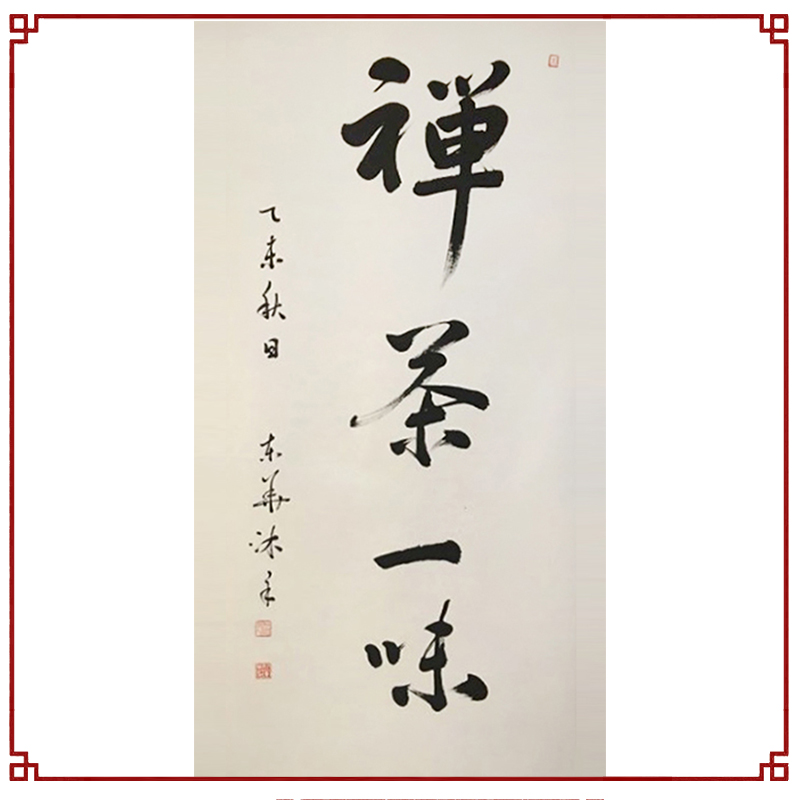 禅茶一味
乙未秋日 东華沐手